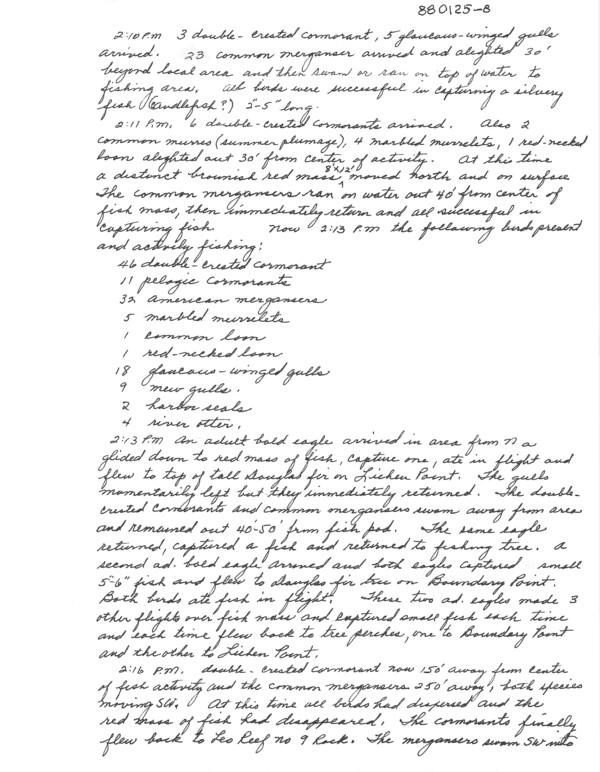 880125-8
2:10 P.M 3 double-crested cormorant, 5 glaucous-winged gulls
arrived. 23 common merganser arrived and alighted 30'
beyond local area and then swam or ran on top of water to
fishing area. All birds were successful in capturing a silvery
fish (candlefish?) 2"-5" long.
2:11 P.M. 6 double-crested cormorants arrived. Also 2
common murres (summer plumage), 4 marbled murrelets, 1 red-necked
loon alighted out 30' from center of activity. At this time
a distinct brownish red mass 8'x12' moved north and on surface
The common mergansers ran on water out 40' from center of
fish mass, then immediately return and all successful in
capturing fish Now 2:13 P.M the following birds present
and actively fishing:
46 double-crested cormorant
11 pelagic cormorants
32 american mergansers
5 marbled murrelets
1 common loon
1 red-necked loon
18 glaucous-winged gulls
9 mew gulls.
2 harbor seals
4 river otter.
2:13 P.M An adult bald eagle arrived in area from N a
glided down to red mass of fish, capture one, ate in flight and
flew to top of tall Douglas fir on Lichen Point. The gulls
momentarily left but they immediately returned. The double-
crested cormorants and common mergansers swam away from area
and remained out 40'-50' from fish pod. The same eagle
returned, captured a fish and returned to fishing tree. A
second ad. bald eagle arrived and both eagles captured small
5"-6" fish and flew to Douglas fir tree on Boundary Point.
Both birds ate fish in flight. These two ad. eagles made 3
other flights over fish mass and captured small fish each time
and each time flew back to tree perches, one to Boundary Point
and the other to Lichen Point.
2:16 P.M. double-crested cormorant now 150' away from center
of fish activity and the common mergansers 250' away, both species
moving SW. At this time all birds had dispersed and the
red mass of fish had disappeared. The cormorants finally
flew back to Leo Reef no 9 Rock. The mergansers swam SW into